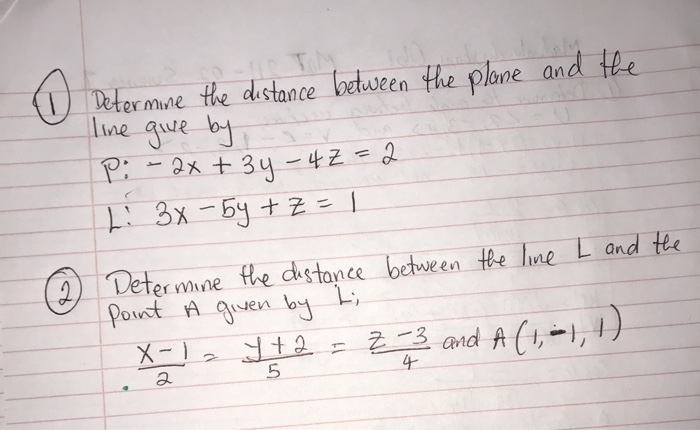 ① Determine the distance between the plane and the
line give by
P: -2x + 3y - 4z = 2
L: 3x - 5y + z = 1
② Determine the distance between the line L and the
point A given by L;
x-1/2 = y+2/5 = z-3/4 and A (1, -1, 1)